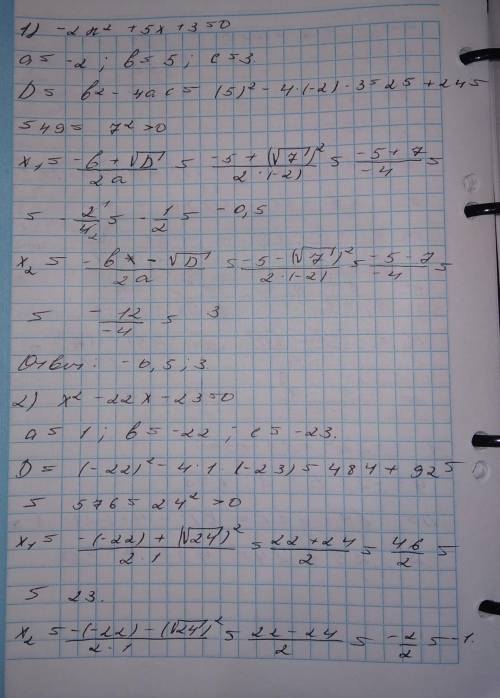 1) -2x² + 5x + 3 = 0
a = -2 ; b = 5 ; c = 3.
D = b² - 4ac = (5)² - 4·(-2)·3 = 25 + 24 =
= 49 = 7² > 0
x₁ = (-b + √D)/(2a) = (-5 + (√7)²)/(2·(-2)) = (-5 + 7)/(-4) =
= -2/4 = -1/2 = -0,5
x₂ = (-b - √D)/(2a) = (-5 - (√7)²)/(2·(-2)) = (-5 - 7)/(-4) =
= (-12)/(-4) = 3
Ответ: -0,5 ; 3
2) x² - 22x - 23 = 0
a = 1 ; b = -22 ; c = -23.
D = (-22)² - 4·1·(-23) = 484 + 92 =
= 576 = 24² > 0
x₁ = (-(-22) + (√24)²)/(2·1) = (22 + 24)/2 = 46/2 =
= 23.
x₂ = (-(-22) - (√24)²)/(2·1) = (22 - 24)/2 = -2/2 = -1.